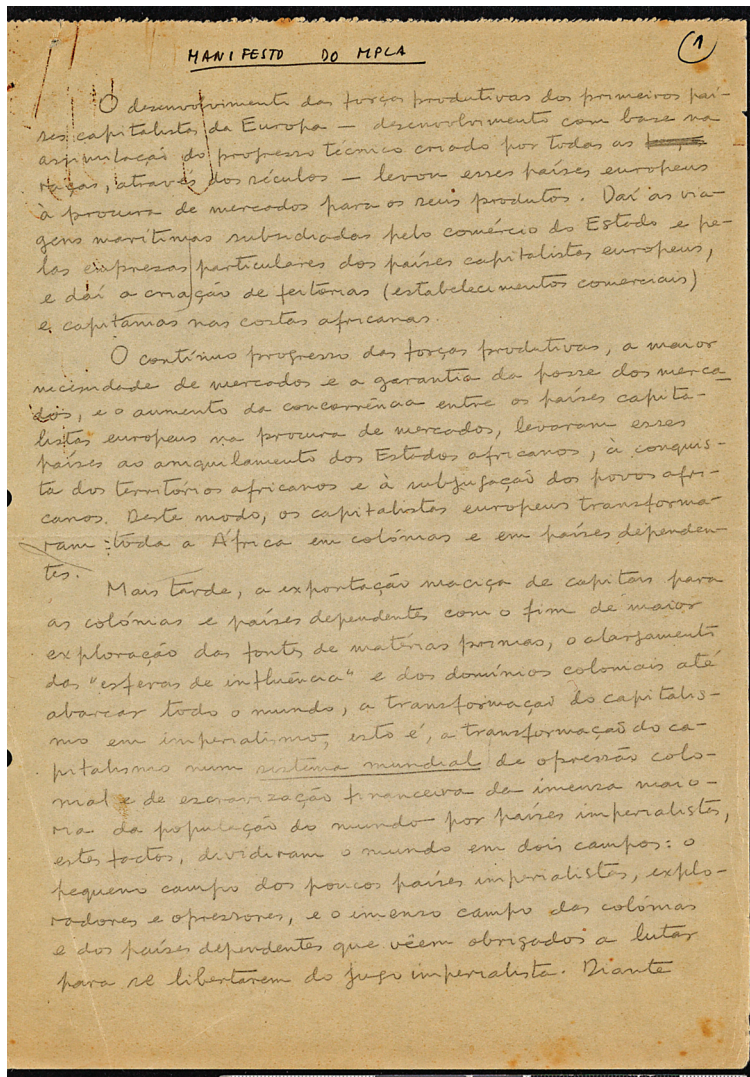 MANIFESTO DO MPLA
1
O desenvolvimento das forças produtivas dos primeiros paí-
ses capitalistas da Europa — desenvolvimento com base na
assimilação do progresso técnico criado por todas as
raças, através dos séculos — levou esses países europeus
à procura de mercados para os seus produtos. Daí as via-
gens marítimas subsidiadas pelo comércio do Estado e pe-
las empresas particulares dos países capitalistas europeus,
e daí a criação de feitorias (estabelecimentos comerciais)
e capitanias nas costas africanas.
O contínuo progresso das forças produtivas, a maior
necessidade de mercados e a garantia da posse dos merca-
dos, e o aumento da concorrência entre os países capita-
listas europeus na procura de mercados, levaram esses
países ao aniquilamento dos Estados africanos, à conquis-
ta dos territórios africanos e à subjugação dos povos afri-
canos. Deste modo, os capitalistas europeus transforma-
ram toda a África em colónias e em países dependen-
tes.
Mais tarde, a exportação maciça de capitais para
as colónias e países dependentes com o fim de maior
exploração das fontes de matérias primas, o alargamento
das "esferas de influência" e dos domínios coloniais até
abarcar todo o mundo, a transformação do capitalis-
mo em imperialismo, isto é, a transformação do ca-
pitalismo num sistema mundial de opressão colo-
nial e de escravização financeira da imensa maio-
ria da população do mundo por países imperialistas,
estes factos, dividiram o mundo em dois campos: o
pequeno campo dos poucos países imperialistas, explo-
radores e opressores, e o imenso campo das colónias
e dos países dependentes que vêem obrigados a lutar
para se libertarem do jugo imperialista. Diante